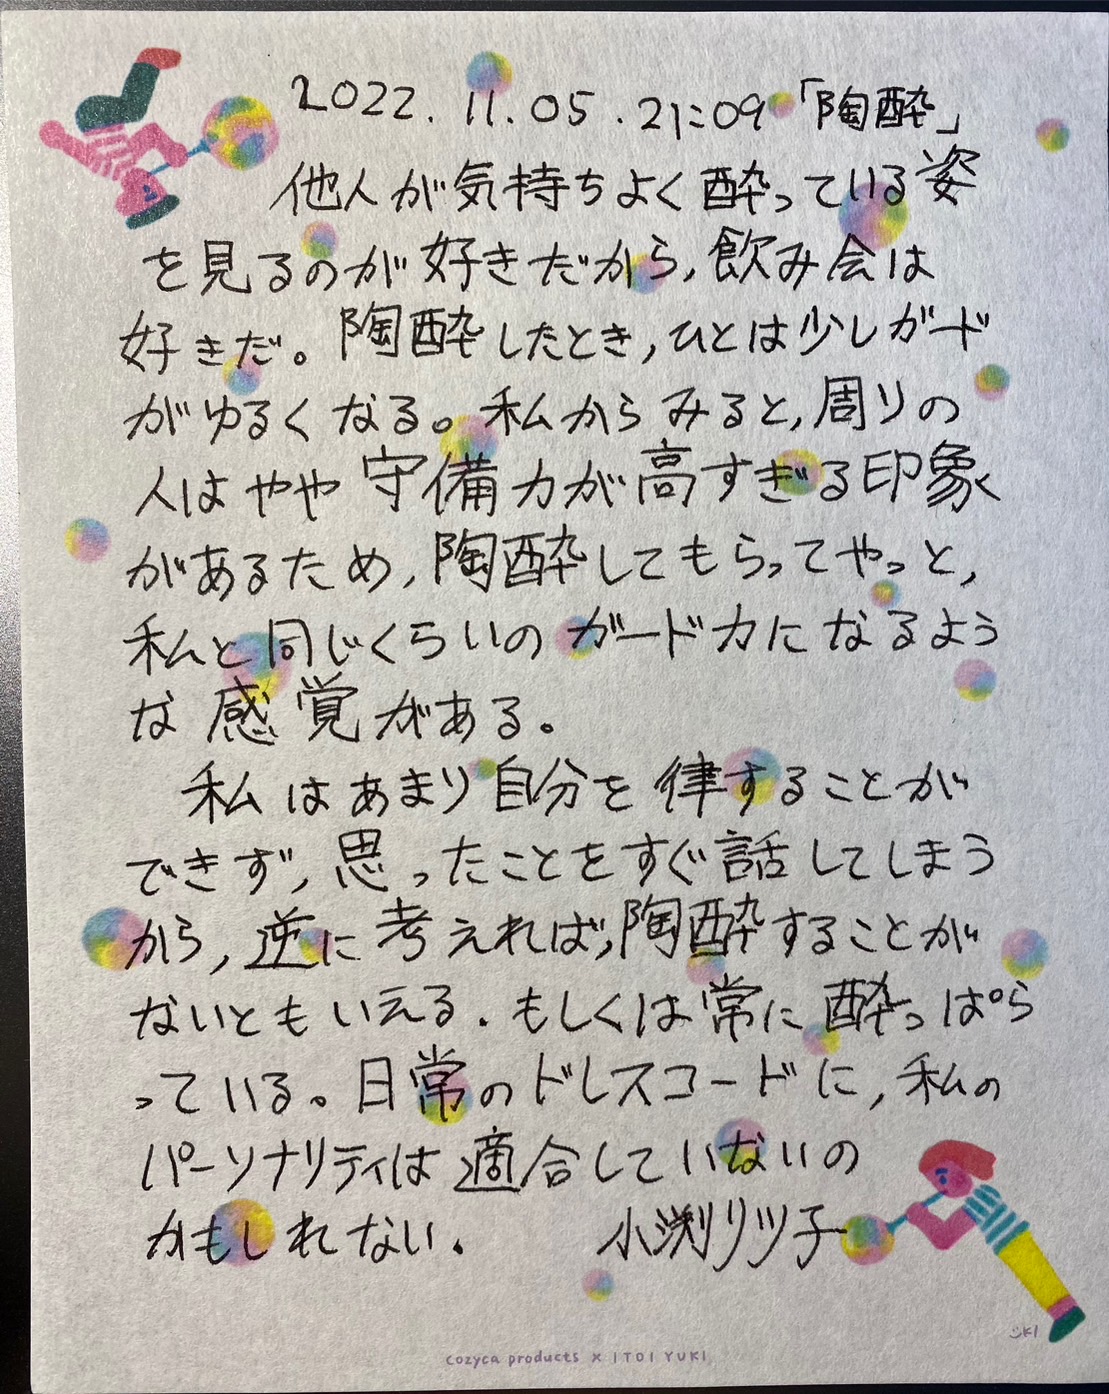 2022.11.05.21:09「陶酔」
他人が気持ちよく酔っている姿
を見るのが好きだから,飲み会は
好きだ。陶酔したとき,ひとは少しガード
がゆるくなる。私からみると,周りの
人はやや守備力が高すぎる印象
があるため,陶酔してもらってやっと,
私と同じくらいのガード力になるよう
な感覚がある。
私はあまり自分を律することが
できず,思ったことをすぐ話してしまう
から,逆に考えれば,陶酔することが
ないともいえる.もしくは常に酔っぱら
っている。日常のドレスコードに,私の
パーソナリティは適合していないの
かもしれない.
小渕リツ子
cozyca products × ITOI YUKI